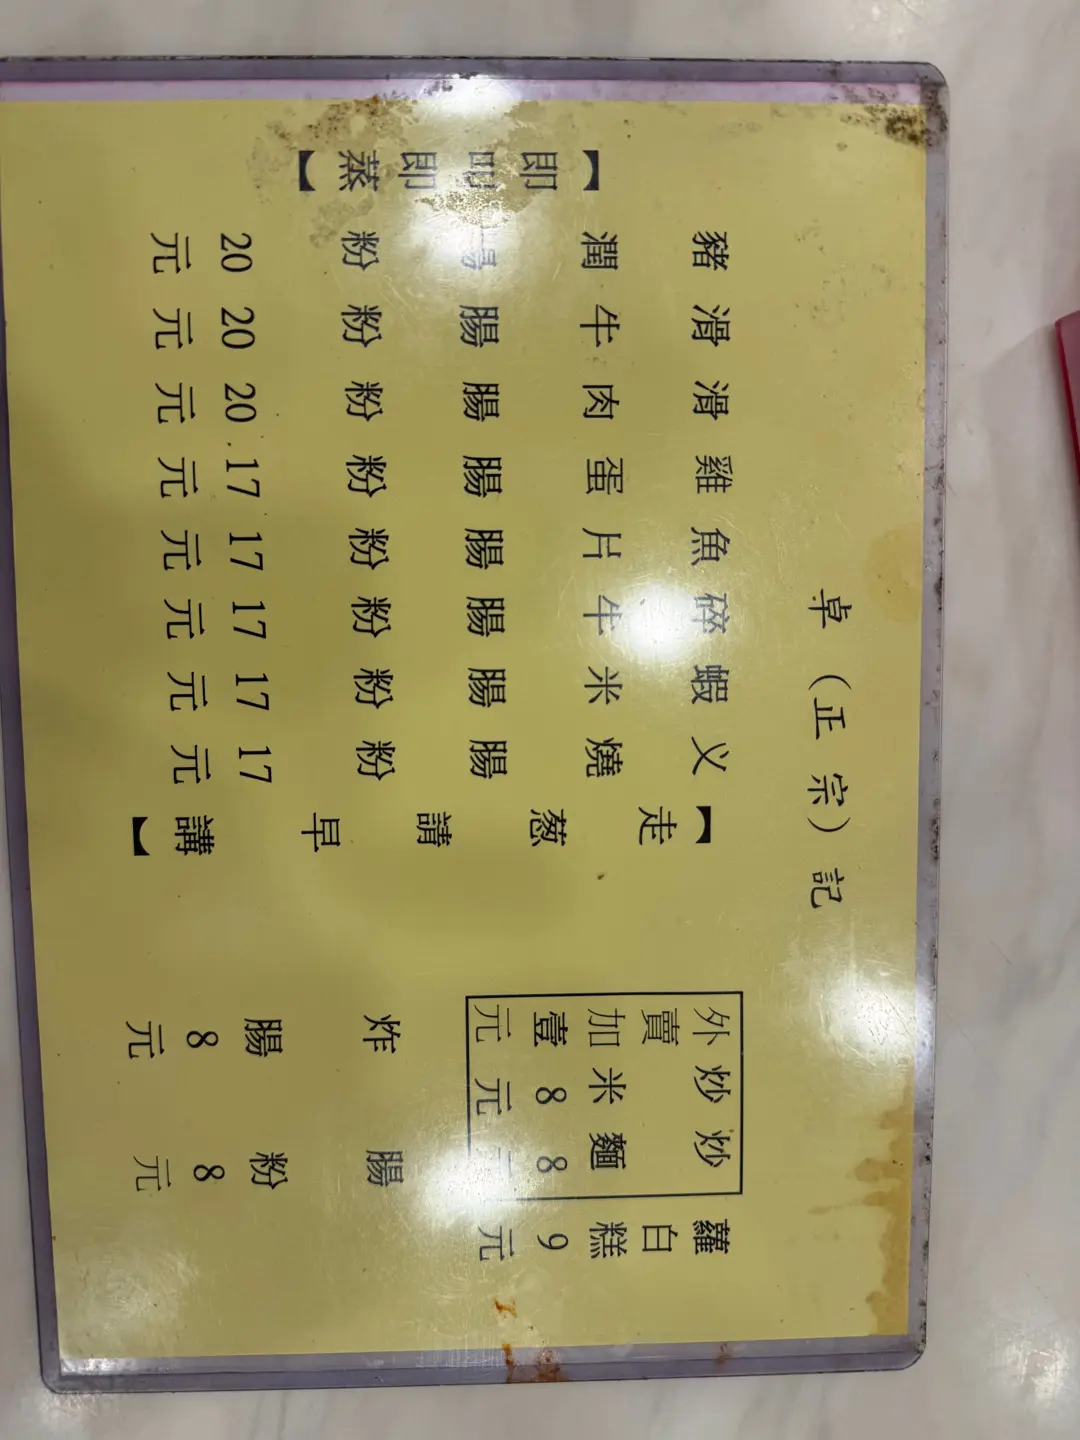 卓(正宗)記
蘿白糕9元
炒麵8元
炒米8元
外賣加壹元
腸粉8元
炸腸8元
【走葱請早講】
义燒腸粉17元
蝦米腸粉17元
碎牛腸粉17元
魚片腸粉17元
雞蛋腸粉17元
滑肉腸粉20元
滑牛腸粉20元
豬潤腸粉20元
【即叫即蒸】